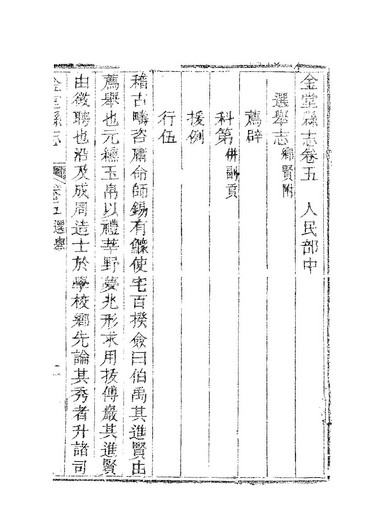 金堂縣志卷五　人民部中
選舉志 鄉賢附
薦辟
科第 併副貢
援例
行伍
稽古疇咨肅命師錫有鰥使宅百揆僉曰伯禹其進賢由
薦舉也元纁玉帛以禮莘野夢兆形求用拔傅巖其進賢
由徵聘也沿及成周造士於學校鄉先論其秀者升諸司
金堂縣志 卷五 選舉